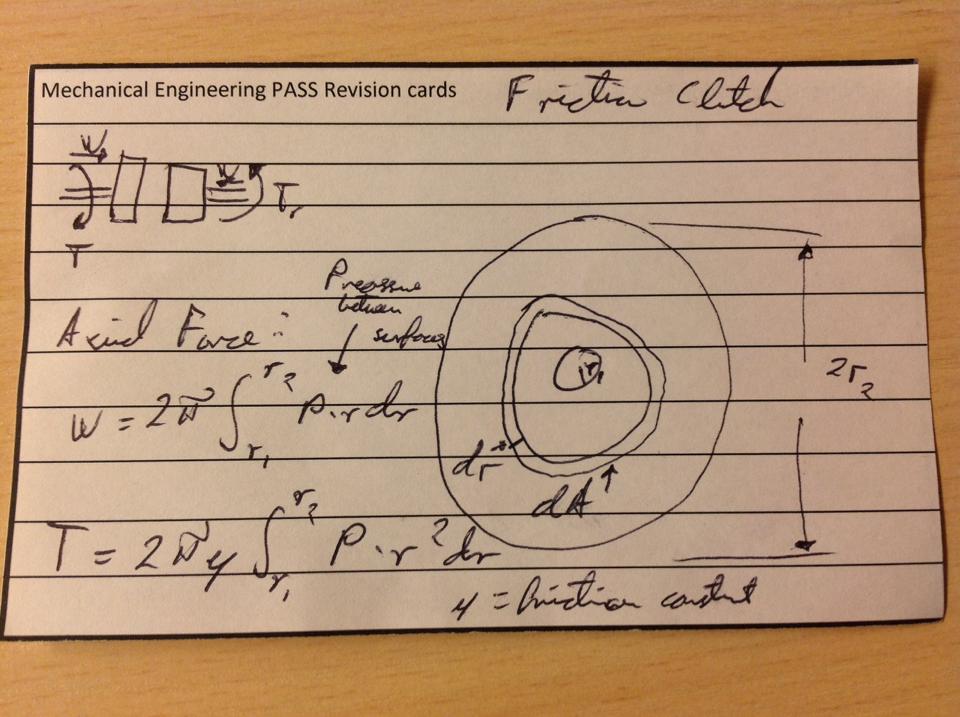 Mechanical Engineering PASS Revision cards
Friction Clutch
W
W
T
T,
Pressure
between
surfaces
Axial Force:
W = 2π ∫ r₂ r₁ P.r dr
r₁
2r₂
dr
dA
T = 2πμ ∫ r₂ r₁ P.r² dr
μ = friction constant